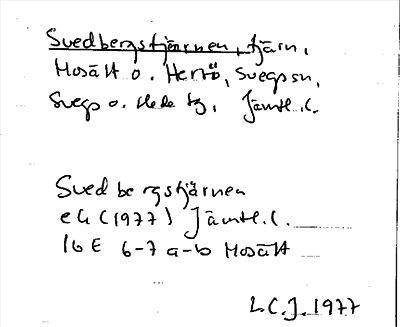 Svedbergstjärnen, tjärn,
Mosätt o. Herrö, Svegs sn,
Svegs o. Hede tg, Jämtl. l.
Svedbergstjärnen
ek (1977) Jämtl. l.
16 E 6-7 a-b Mosätt
L.C.J. 1977